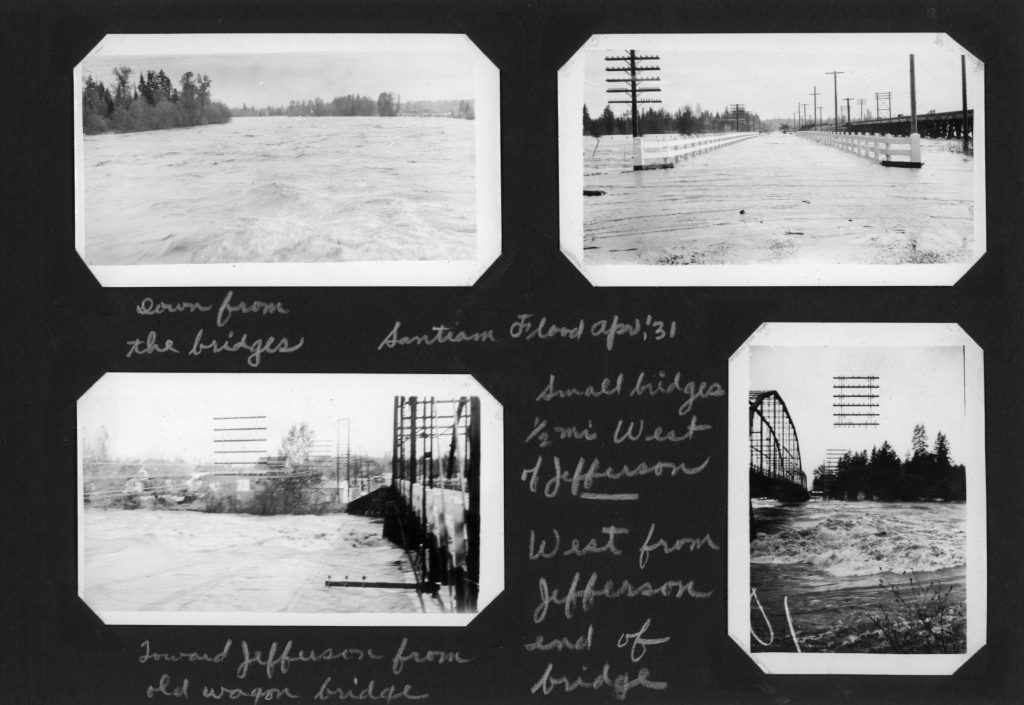 Down from
the bridges
Santiam Flood Apr, '31
Small bridges
1/2 mi West
of Jefferson
West from
Jefferson
end of
bridge
Toward Jefferson from
old wagon bridge